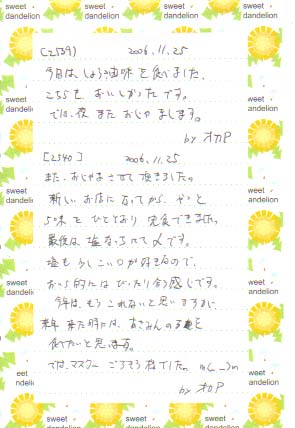 sweet dandelion
[2539) 2006.11.25
今日は、しょう油味を食べました。
こちらもおいしかったです。
では、夜またおじゃまします。
by オカP
[2540] 2006.11.25
また、おじゃまさせて頂きました。
新しいお店になってから、やっと
5味をひととおり完食できました。
最後は塩ならにて〆です。
塩もうしこい口が好きなので、
おら的にはぴったり合う感じです。
今年は、もうこれないと思いますが
来年来た時には、あさみんの を
食べたいと思います。
では、マスターごちそう様でした。m(_ _)m
by オカP
sweet dandelion